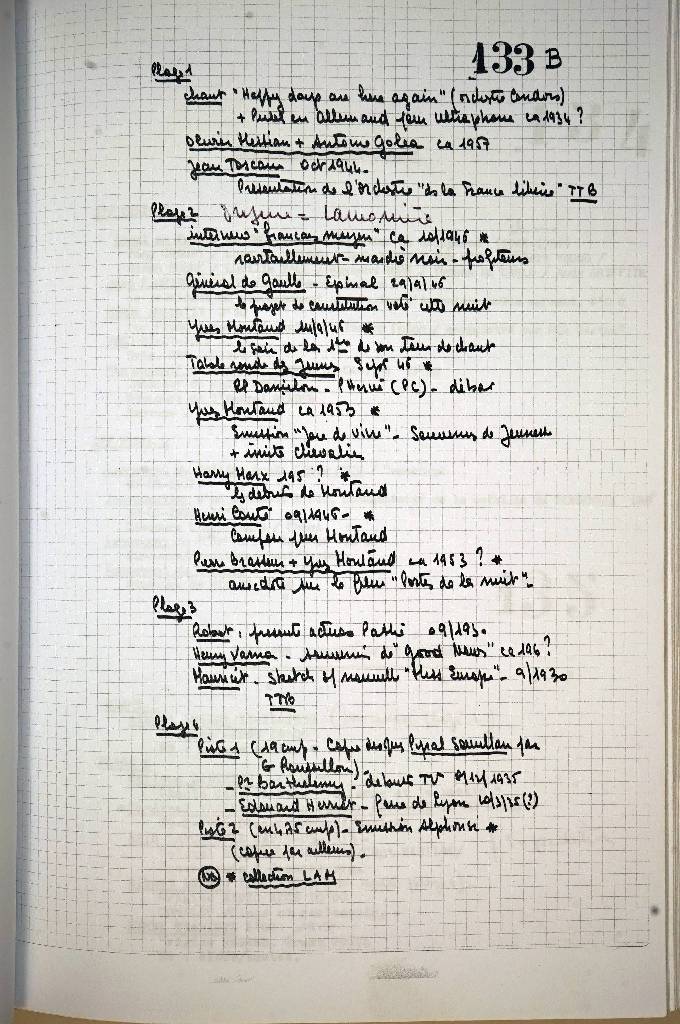 133 B
Plage 1
chant "Happy days are here again" (orchestre Candrix)
+ Publ en Allemand pour Ultraphone ca 1934 ?
Olivier Messian + Antoine Golea ca 1957
Jean Toscane Oct 1944 -
Présentation de l'Orchestre "de la France libérée" TTB
Plage 2
interview "français moyen" ca 10/1946 *
ravitaillement - marché noir - profiteurs
Général de Gaulle - Epinal 29/9/46
le projet de constitution voté cette nuit
Yves Montand /9/46 *
le soir de la 1ère de son tour de chant
Table ronde des Jeunes Sept 46 *
RP Danielou - P Hervé (PC) - débat
Yves Montand ca 1953 *
Emission "Joie de vivre" - Souvenirs de Jeunesse
+ imite Chevalier
Harry Marx 195 ? *
les débuts de Montand
Henri Contet 09/1946 - *
Compose pour Montand
Pierre Brasseur + Yves Montand ca 1953 ? *
anecdote sur le film "Portes de la nuit" -
Plage 3
Robert : présente actues Pathé 09/1930
Henry Varna - souvenirs de "Good News" ca 196 ?
Mauricet - Sketch s/ nouvelle "Miss Europe" - 9/1930
TTB
Plage 4
Piste 1 (19 cm/s - Copie disques Pyral Souillan par
G Roussillon)
- Barthelemy - débuts TV 8/12/1935
- Edouard Herriot - foire de Lyon 10/3/35 (?)
Piste 2 (en 4,75 cm/s) - Emission Alphonse *
(copiée par ailleurs).
NB * collection LAM